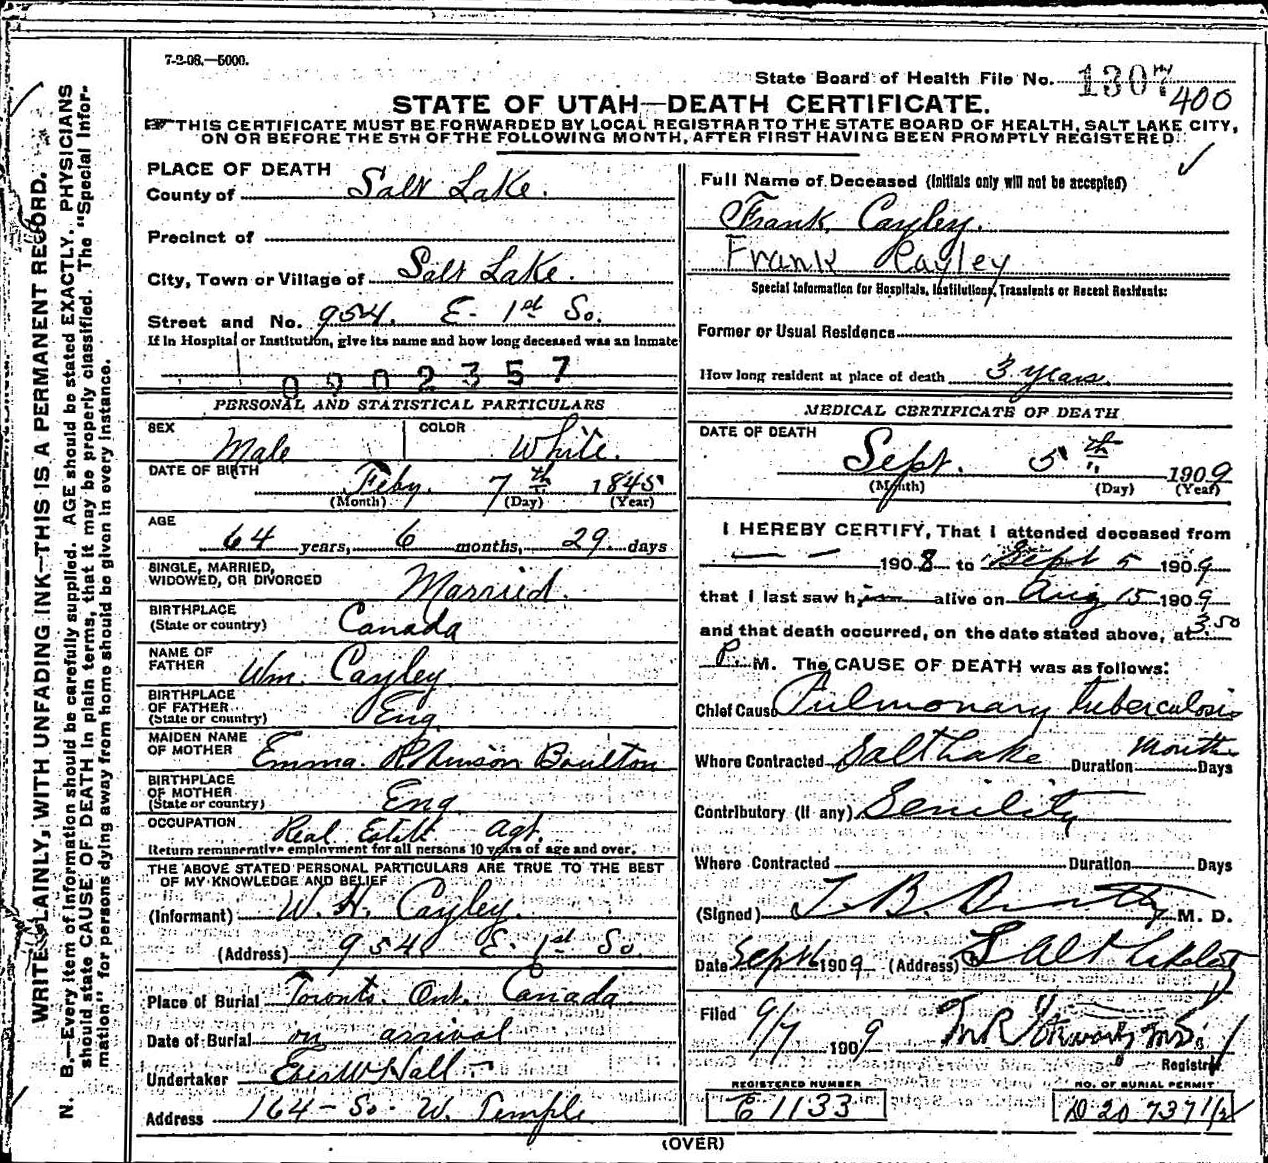 7-2-08.—5000.
State Board of Health File No. 1307
400
STATE OF UTAH—DEATH CERTIFICATE.
THIS CERTIFICATE MUST BE FORWARDED BY LOCAL REGISTRAR TO THE STATE BOARD OF HEALTH, SALT LAKE CITY,
ON OR BEFORE THE 5TH OF THE FOLLOWING MONTH, AFTER FIRST HAVING BEEN PROMPTLY REGISTERED.
WRITE PLAINLY, WITH UNFADING INK—THIS IS A PERMANENT RECORD.
N. B.—Every item of information should be carefully supplied. AGE should be stated EXACTLY. PHYSICIANS
should state CAUSE OF DEATH in plain terms, that it may be properly classified. The "Special Infor-
mation" for persons dying away from home should be given in every instance.
PLACE OF DEATH
County of Salt Lake.
Precinct of
City, Town or Village of Salt Lake.
Street and No. 954. E. 1st So.
If in Hospital or Institution, give its name and how long deceased was an inmate
0902357
PERSONAL AND STATISTICAL PARTICULARS
SEX Male
COLOR White.
DATE OF BIRTH
Feby. 7th 1845
(Month) (Day) (Year)
AGE
64 years, 6 months, 29 days
SINGLE, MARRIED,
WIDOWED, OR DIVORCED Married.
BIRTHPLACE
(State or country) Canada
NAME OF
FATHER Wm. Cayley
BIRTHPLACE
OF FATHER
(State or country) Eng
MAIDEN NAME
OF MOTHER Emma Robinson Boulton
BIRTHPLACE
OF MOTHER
(State or country) Eng
OCCUPATION Real Estate Agt.
Return remunerative employment for all persons 10 years of age and over.
THE ABOVE STATED PERSONAL PARTICULARS ARE TRUE TO THE BEST
OF MY KNOWLEDGE AND BELIEF
(Informant) W. H. Cayley.
(Address) 954 E. 1st So.
Place of Burial Toronto. Ont. Canada
Date of Burial on arrival
Undertaker Hall
Address 164 - So. W. Temple
Full Name of Deceased (Initials only will not be accepted)
Frank Cayley.
Frank Cayley
Special Information for Hospitals, Institutions, Transients or Recent Residents:
Former or Usual Residence
How long resident at place of death 3 years.
MEDICAL CERTIFICATE OF DEATH
DATE OF DEATH
Sept. 5th 1909
(Month) (Day) (Year)
I HEREBY CERTIFY, That I attended deceased from
1908 to Sept 5 1909
that I last saw him alive on Aug 15 1909
and that death occurred, on the date stated above, at 3.50
P. M. The CAUSE OF DEATH was as follows:
Chief Cause Pulmonary tuberculosis
Where Contracted Salt Lake Duration Months Days
Contributory (if any) Senility
Where Contracted Duration Days
(Signed) T. B. Beatty M. D.
Date Sept 6 1909 (Address) Salt Lake City
Filed 9/7 1909
Registrar
REGISTERED NUMBER
E 1133
NO. OF BURIAL PERMIT
D 20 737 1/2
(OVER)